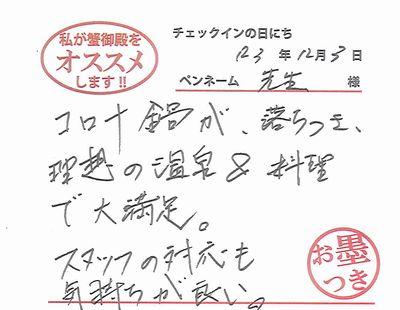 私が蟹御殿を
オススメ
します!!
チェックインの日にち
R3 年 12月 3 日
ペンネーム 先生 様
コロナ鍋が、落ちつき、
理想の温泉&料理
で大満足。
スタッフの対応も
気持ちが良い。
お墨
つき